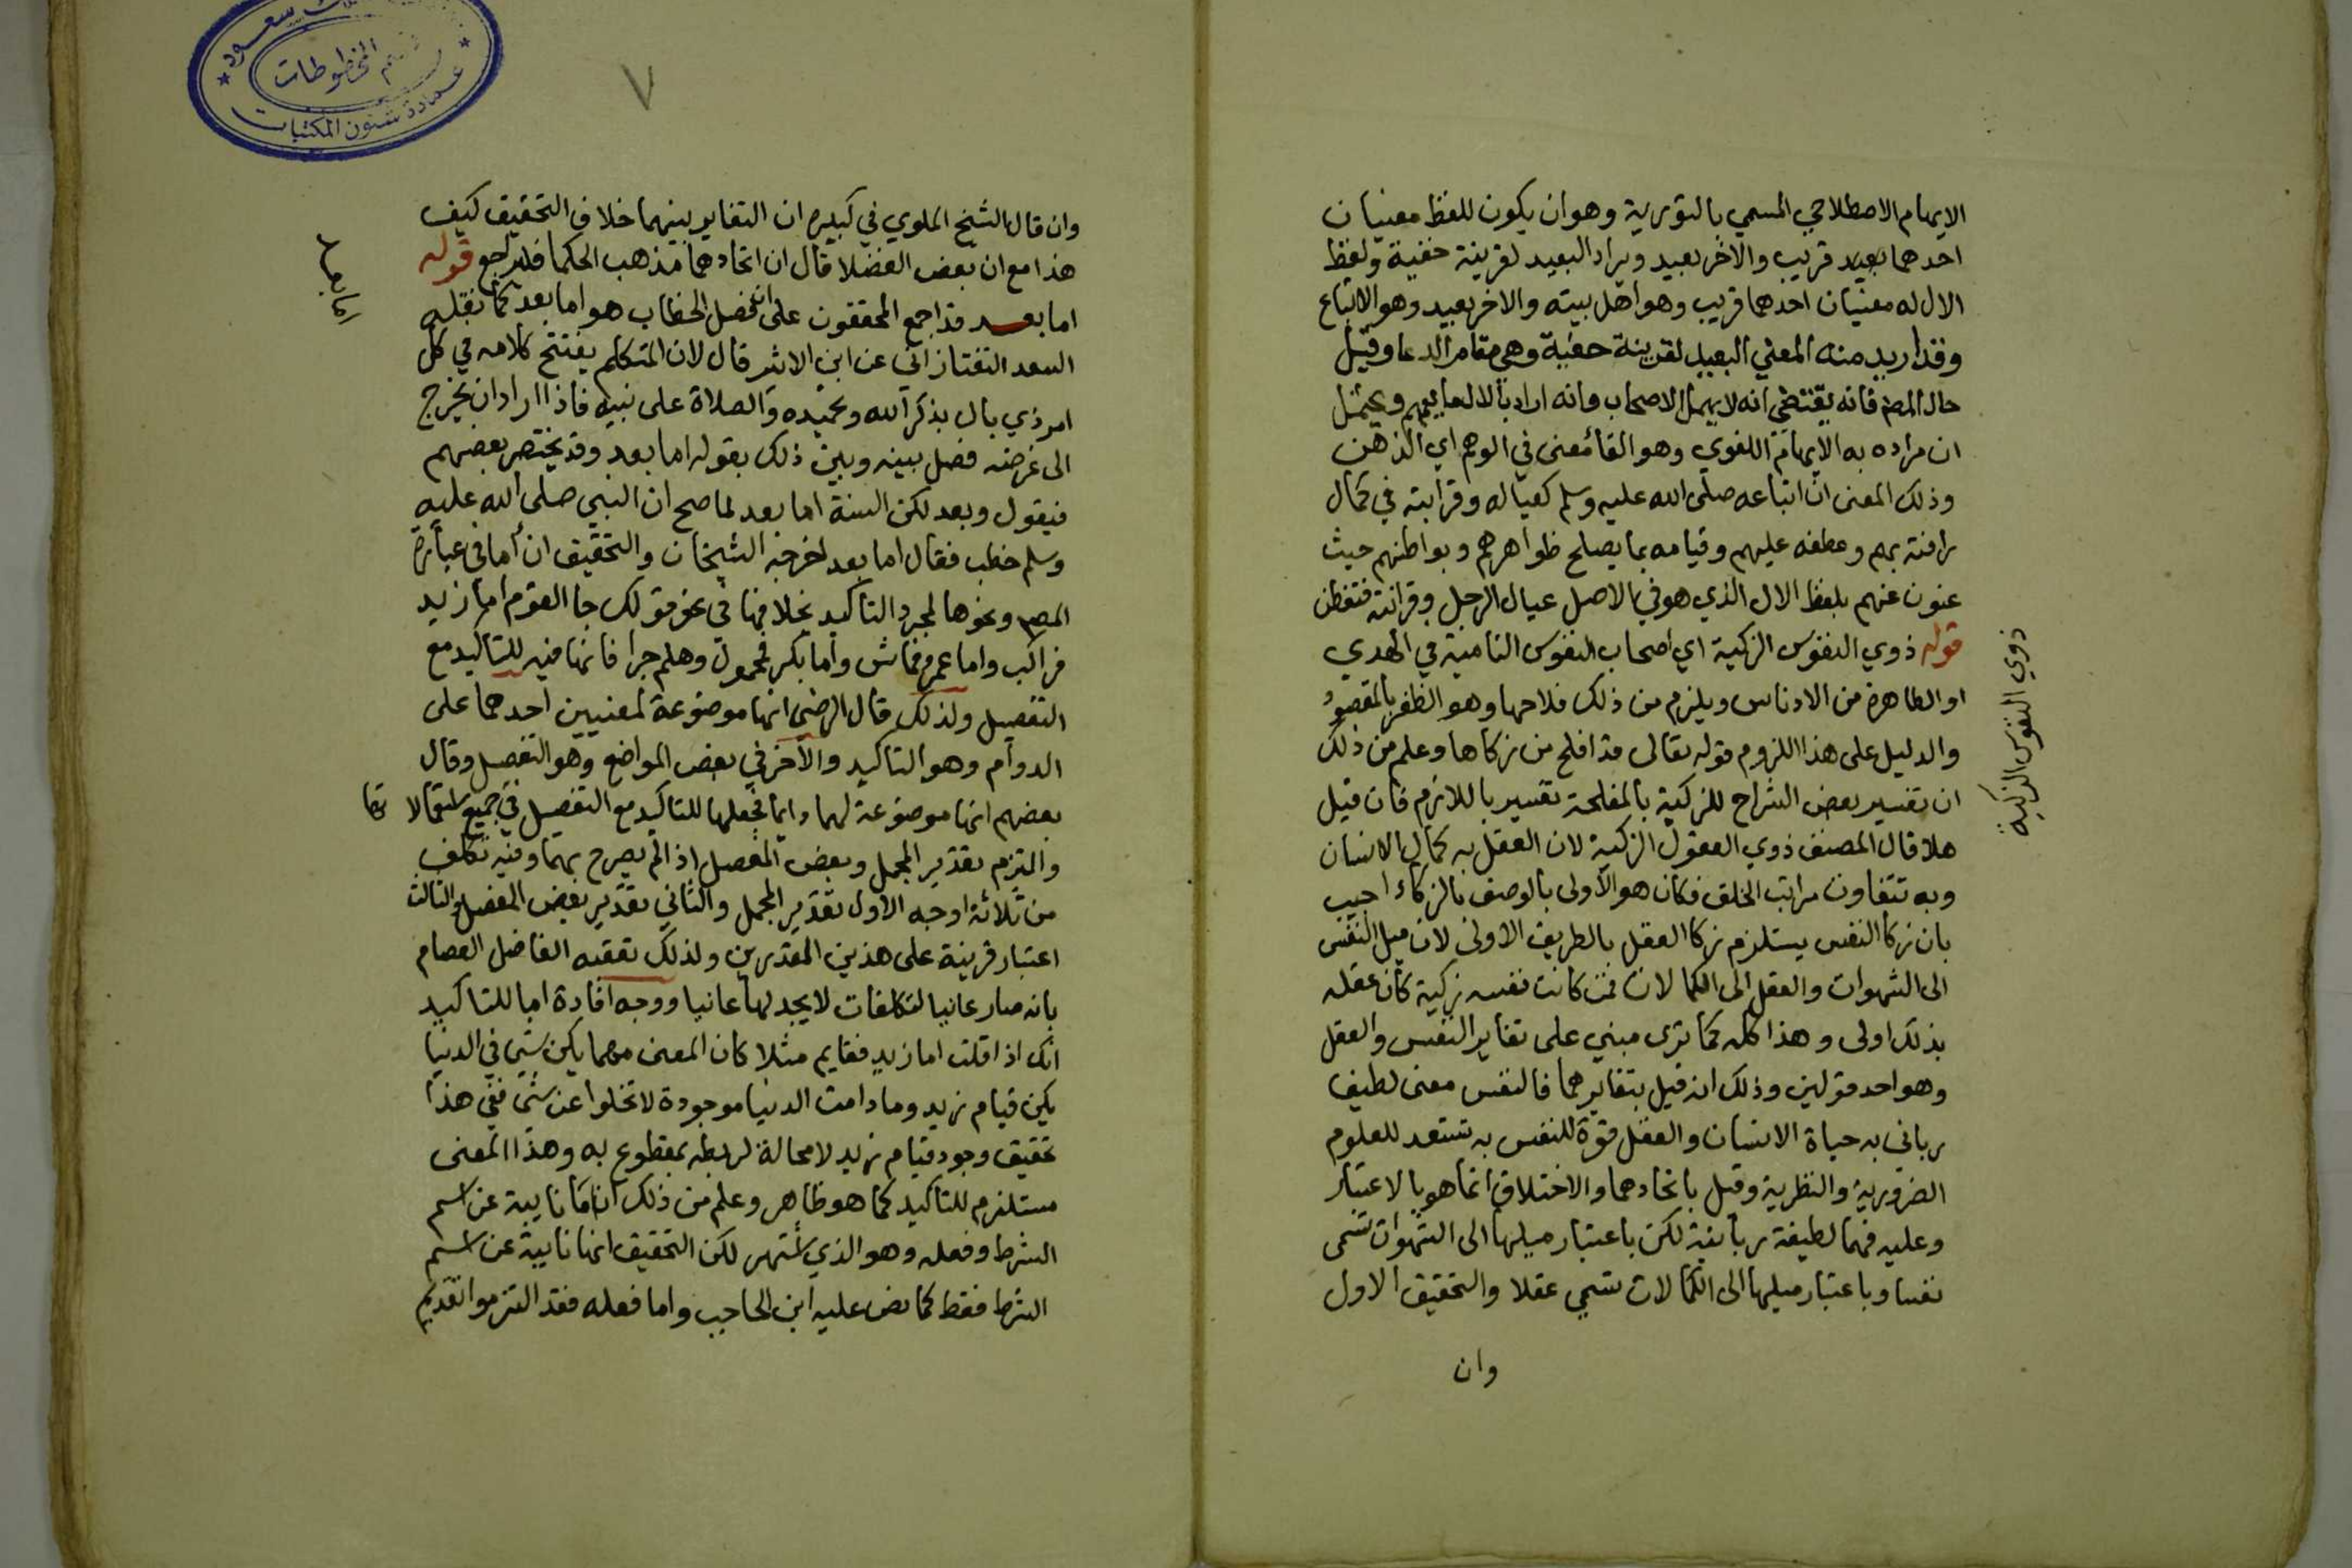 الايهام الاصطلاحي المسمي بالتورية وهو ان يكون للفظ معنيان
احدهما بعيد قريب والاخر بعيد ويراد البعيد لقرينة خفية ولفظ
الال له معنيان احدهما قريب وهو اهل بيته والاخر بعيد وهو الاتباع
وقد اريد منه المعني البعيد لقرينة خفية وهي مقام الدعا وقيل
حال المص فانه يقتضي انه لا يهمل الاصحاب وانه اراد بالال ما يعمهم ويحتمل
ان مراده به الايهام اللغوي وهو القا معنى في الوهم اي الذهن
وذلك المعنى ان اتباعه صلى الله عليه وسلم كعياله وقرابته في كمال
رافته بهم وعطفه عليهم وقيامه بما يصلح ظواهرهم وبواطنهم حيث
عنون عنهم بلفظ الال الذي هو في الاصل عيال الرجل وقرابته فتفطن
قوله ذوي النفوس الزكية اي اصحاب النفوس النامية في الهدي
او الطاهرة من الادناس ويلزم من ذلك فلاحها وهو الظفر بالمقصود
والدليل على هذا اللزوم قوله تعالى قد افلح من زكاها وعلم من ذلك
ان تفسير بعض الشراح للزكية بالمفلحة تفسير باللازم فان قيل
هلا قال المصنف ذوي العقول الزكية لان العقل به كمال الانسان
وبه تتفاوت مراتب الخلق فكان هو الاولى بالوصف بالزكاء اجيب
بان زكا النفس يستلزم زكا العقل بالطريق الاولى لان ميل النفس
الى الشهوات والعقل الى الكمالات فمن كانت نفسه زكية كان عقله
بذلك اولى وهذا كله كما ترى مبني على تغاير النفس والعقل
وهو احد قولين وذلك انه قيل بتغايرهما فالنفس معنى لطيف
رباني به حياة الانسان والعقل قوة للنفس به تستعد للعلوم
الضرورية والنظرية وقيل باتحادهما والاختلاف انما هو بالاعتبار
وعليه فهما لطيفة ربانية لكن باعتبار ميلها الى الشهوات تسمى
نفسا وباعتبار ميلها الى الكمالات تسمي عقلا والتحقيق الاول
وان
ذوي النفوس الزكية
٧
المخطوطات
عمادة شئون المكتبات
وان قال الشيخ الملوي في كبيره ان التغاير بينهما خلاف التحقيق كيف
هذا مع ان بعض الفضلا قال ان اتحادهما مذهب الحكما فليراجع قوله
اما بعد قد اجمع المحققون على ان فصل الخطاب هو اما بعد كما نقله
السعد التفتازاني عن ابن الاثير قال لان المتكلم يفتتح كلامه في كل
امر ذي بال بذكر الله وتحميده والصلاة على نبيه فاذا اراد ان يخرج
الى غرضه فصل بينه وبين ذلك بقوله اما بعد وقد يختصر بعضهم
فيقول وبعد لكن السنة اما بعد لما صح ان النبي صلى الله عليه
وسلم خطب فقال اما بعد اخرجه الشيخان والتحقيق ان أما في عبارة
المص ونحوها لمجرد التاكيد بخلافها في نحو قولك جا القوم اما زيد
فراكب واما عمرو فماش واما بكر فمحمول وهلم جرا فانها فيه للتاكيد مع
التفصيل ولذلك قال الرضي انها موضوعة لمعنيين احدهما على
الدوام وهو التاكيد والاخر في بعض المواضع وهو التفصيل وقال
بعضهم انها موضوعة لهما دايما فجعلها للتاكيد مع التفصيل في جميع استعمالاتها
والتزم تقدير المجمل وبعض المفصل اذا لم يصرح بهما وفيه تكلف
من ثلاثة اوجه الاول تقدير المجمل والثاني تقدير بعض المفصل والثالث
اعتبار قرينة على هذين المقدرين ولذلك تعقبه الفاضل العصام
بانه صار عانيا لتكلفات لا يجد لها عانيا ووجه افادة اما للتاكيد
انك اذا قلت اما زيد فقايم مثلا كان المعنى مهما يكن شي في الدنيا
يكن قيام زيد وما دامت الدنيا موجودة لا تخلوا عن شى ففي هذا
تحقيق وجود قيام زيد لا محالة لربطه بمقطوع به وهذا المعنى
مستلزم للتاكيد كما هو ظاهر وعلم من ذلك ان اما نايبة عن اسم
الشرط وفعله وهو الذي اشتهر لكن التحقيق انها نايبة عن اسم
الشرط فقط كما نص عليه ابن الحاجب واما فعله فقد التزموا تقديم
اما بعد